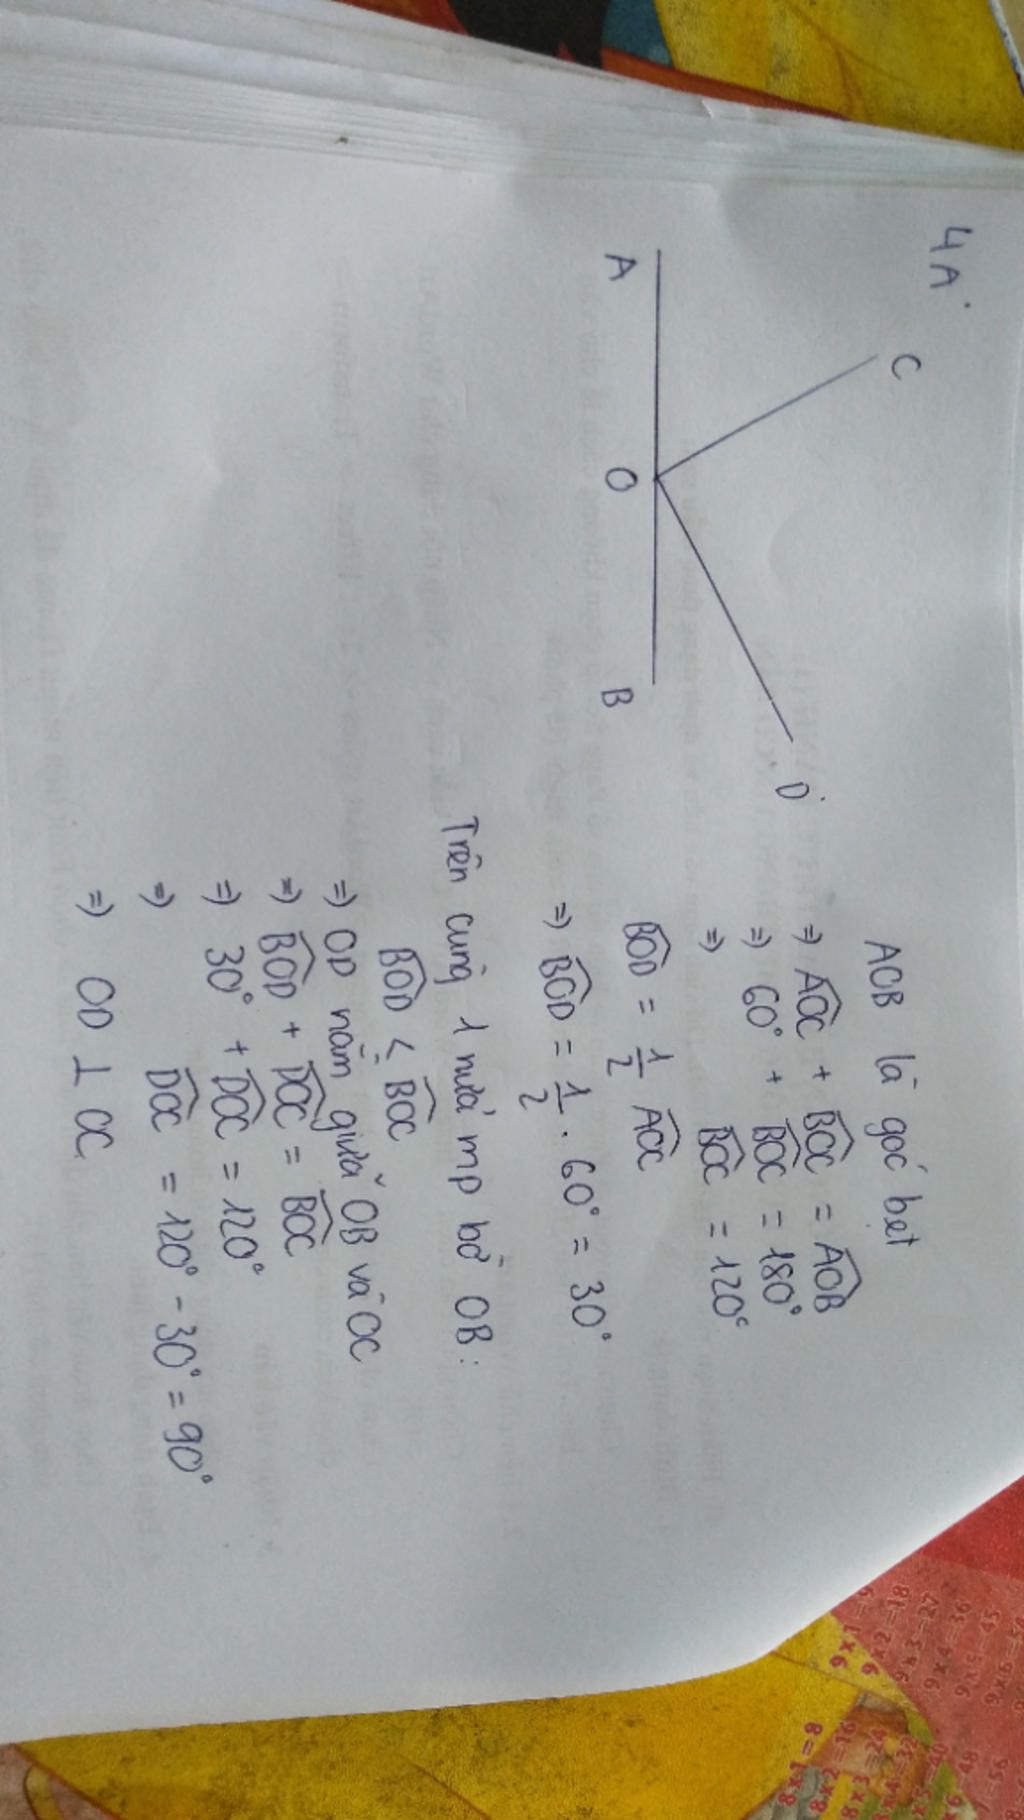 4A.
C
D
A
O
B
AOB là góc bẹt
=> \widehat{AOC} + \widehat{BOC} = \widehat{AOB}
=> 60° + \widehat{BOC} = 180°
=> \widehat{BOC} = 120°
\widehat{BOD} = \frac{1}{2} \widehat{AOC}
=> \widehat{BOD} = \frac{1}{2} . 60° = 30°
Trên cùng 1 nửa mp bờ OB:
\widehat{BOD} < \widehat{BOC}
=> OD nằm giữa OB và OC
=> \widehat{BOD} + \widehat{DOC} = \widehat{BOC}
=> 30° + \widehat{DOC} = 120°
=> \widehat{DOC} = 120° - 30° = 90°
=> OD ⊥ OC
9x1=9
9x2=18
9x3=27
9x4=36
9x5=45
8x1=8
8x2=16
8x3=24
8x4=32